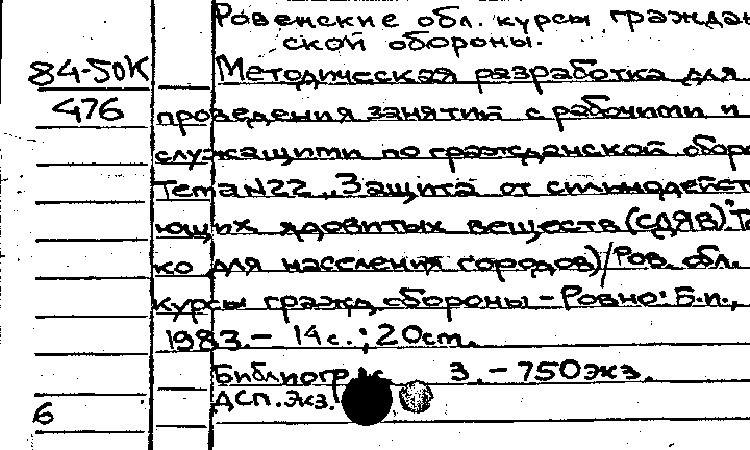 Ровенские обл. курсы граждан
ской обороны.
84-50К Методическая разработка для
476 проведения занятий с рабочими и
служащими по гражданской оборо
Тема №22 „Защита от сильнодейст
ющих ядовитых веществ (СДЯВ)". То
ко для населения городов)/Ров. обл.
курсы гражд. обороны - Ровно: Б.и.,
1983. - 14 с.; 20 см.
Библиогр. с. 3. - 750 экз.
ДСП. Экз.
6